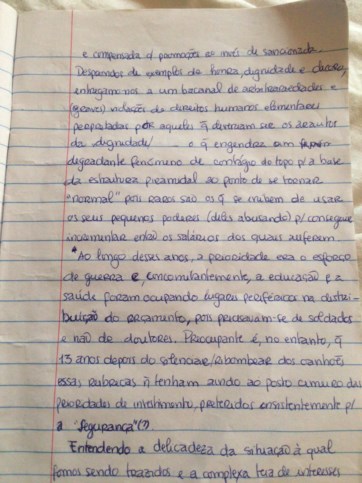 e compensada c/ promoções ao invés de sancionada.
Despojados de exemplos de honra, dignidade e decoro,
entregamo-nos a um bacanal de arbitrariedades e
(graves) violações de direitos humanos elementares
perpetradas por aqueles q̃ deveriam ser os arautos
da dignidade/ o q̃ engendra um
degradante fenómeno de contágio do topo p/ a base
da estrutura piramidal ao ponto de se tornar
"normal" pois raros são os q̃ se inibem de usar
os seus pequenos poderes (deles abusando) p/ conseguir
incrementar os salários dos quais auferem.
Ao longo desses anos, a prioridade era o esforço
de guerra e, concomitantemente, a educação e a
saúde foram ocupando lugares periféricos na distri-
buição do orçamento, pois precisavam-se de soldados
e não de doutores. Preocupante é, no entanto, q̃
13 anos depois do silenciar/ ribombear dos canhões
essas rubricas ñ tenham ao posto cimeiro das
prioridades de investimento, preteridos consistentemente p/
a "segurança"(?).
Entendendo a delicadeza da situação à qual
fomos sendo trazidos e a complexa teia de interesses